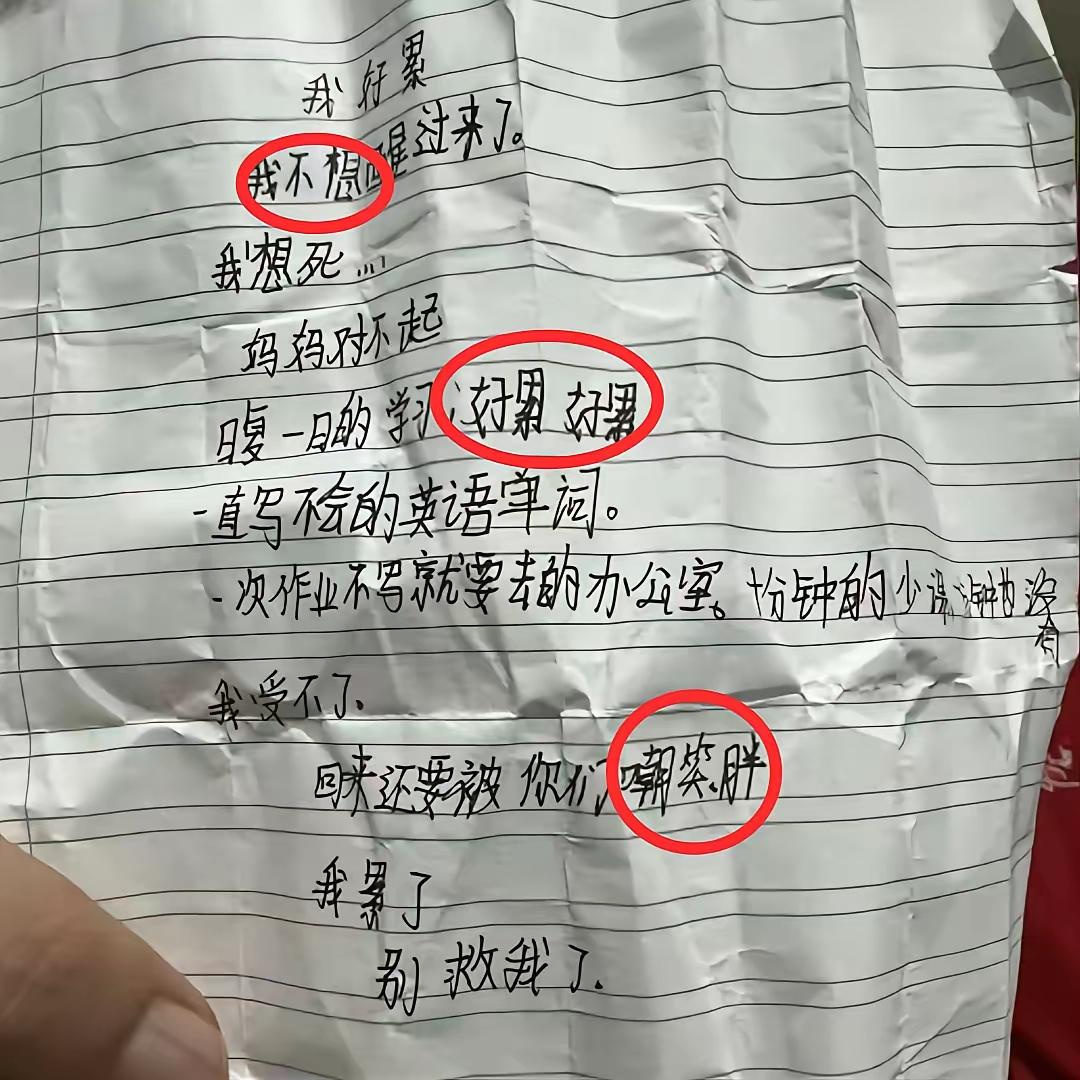 我好累
我不想醒过来了。
我想死...
妈妈对不起
日复一日的学习 好累 好累
一直写不会的英语单词。
一次作业不写就要去的办公室。十分钟的少
有
我受不了.
回来还要被你们嘲笑胖
我累了
别救我了.